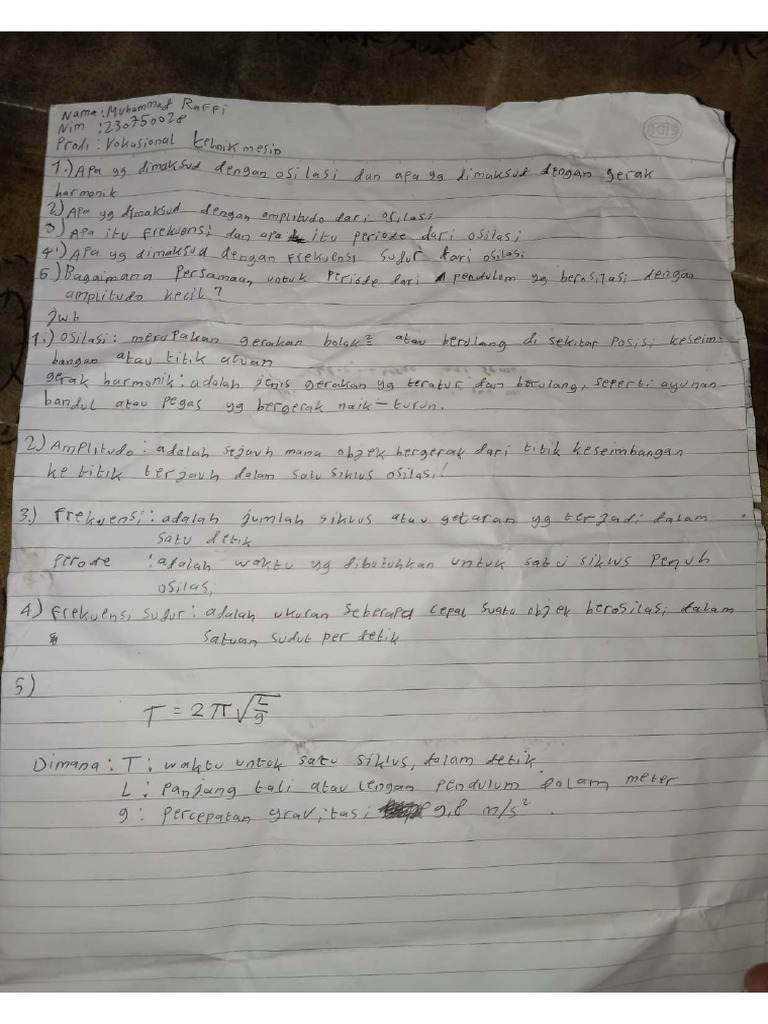 Nama : Muhammad Raffi
Nim : 230750028
Prodi : Vokasional teknik mesin
1.) Apa yg dimaksud dengan osilasi dan apa yg dimaksud dengan gerak
harmonik
2) Apa yg dimaksud dengan amplitudo dari osilasi
3) Apa itu Frekuensi dan apa itu periode dari osilasi
4) Apa yg dimaksud dengan Frekuensi sudur dari osilasi
5) Bagaimana Persamaan untuk Periode dari pendulum yg berosilasi dengan
amplitudo kecil?
Jwb
1.) Osilasi : merupakan gerakan bolak² atau berulang di sekitar posisi keseim-
bangan atau titik acuan
gerak harmonik : adalah jenis gerakan yg teratur dan berulang, seperti ayunan
bandul atau pegas yg bergerak naik-turun.
2) Amplitudo : adalah sejauh mana objek bergerak dari titik keseimbangan
ke titik terjauh dalam satu siklus osilasi
3.) Frekuensi : adalah jumlah siklus atau getaran yg terjadi dalam
satu detik
Perode : adalah waktu yg dibutuhkan untuk satu siklus penuh
osilasi
4) Frekuensi sudur : adalah ukuran seberapa cepat suatu objek berosilasi dalam
satuan sudut per detik
5)
T = 2π√L/g
Dimana : T : waktu untuk satu siklus, dalam detik
L : Panjang tali atau lengan pendulum dalam meter
g : percepatan gravitasi 9,8 m/s².